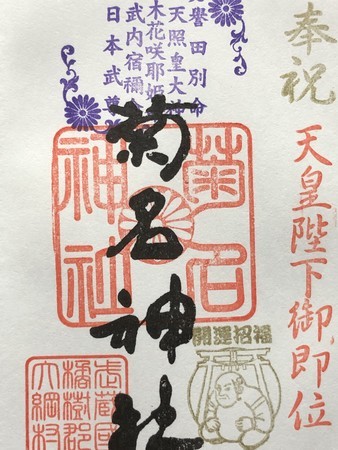 奉祝
天皇陛下御即位
誉田別命
天照皇大神
木花咲耶姫
武内宿禰命
日本武尊
菊名神社
菊名
神社
開運招福
武蔵國
橘樹郡
大綱村